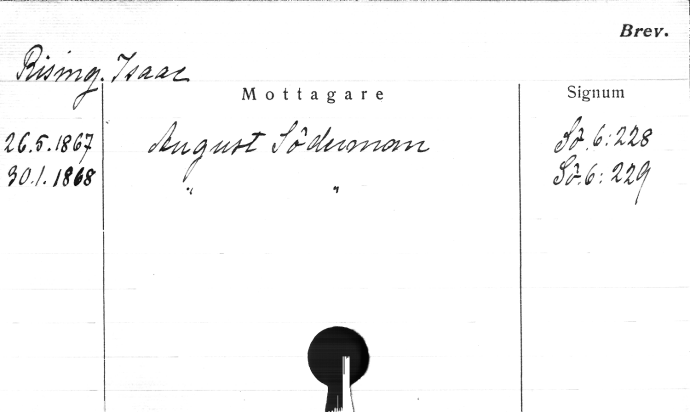 Brev.
Rising, Isaac
Mottagare Signum
26.5.1867 August Söderman Sö. 6:228
30.1.1868 " " Sö. 6:229